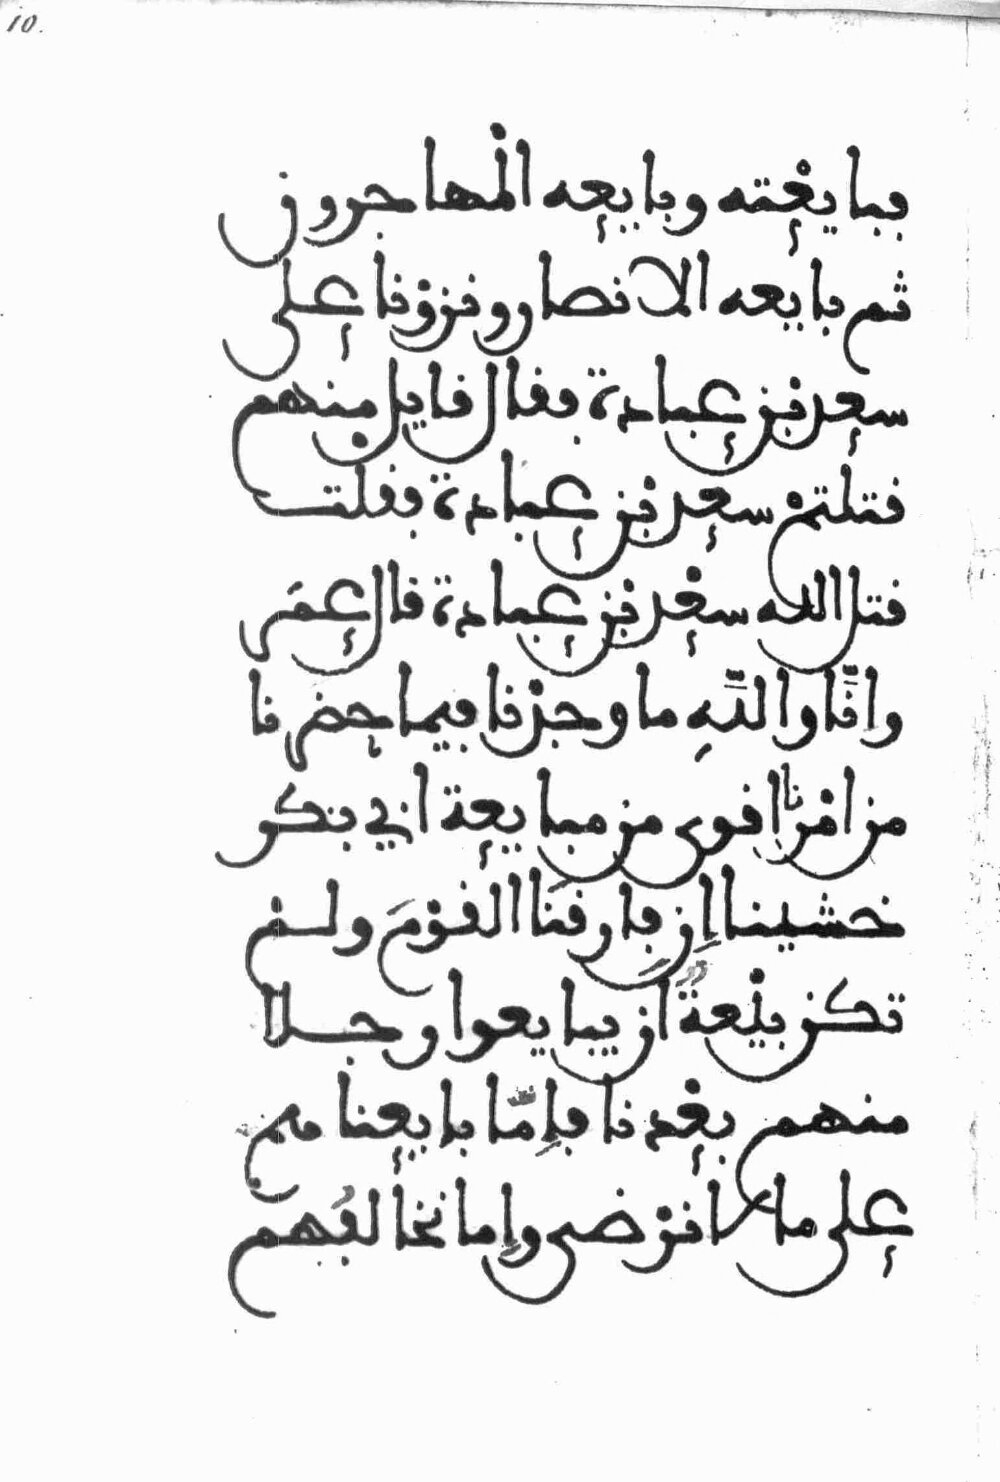 10.
فبايعته وبايعه المهاجرون
ثم بايعه الانصار ونزونا على
سعد بن عبادة فقال قايل منهم
قتلتم سعد بن عبادة فقلت
قتل الله سعد بن عبادة قال عمر
وانّا والله ما وجدنا فيما حضرنا
من امرنا اقوى من مبايعة ابي بكر
خشينا إن فارقنا القوم ولم
تكن بيعة أن يبايعوا رجلا
منهم بعدنا فإمّا بايعناهم
على ما لا نرضى وإما نخالفهم